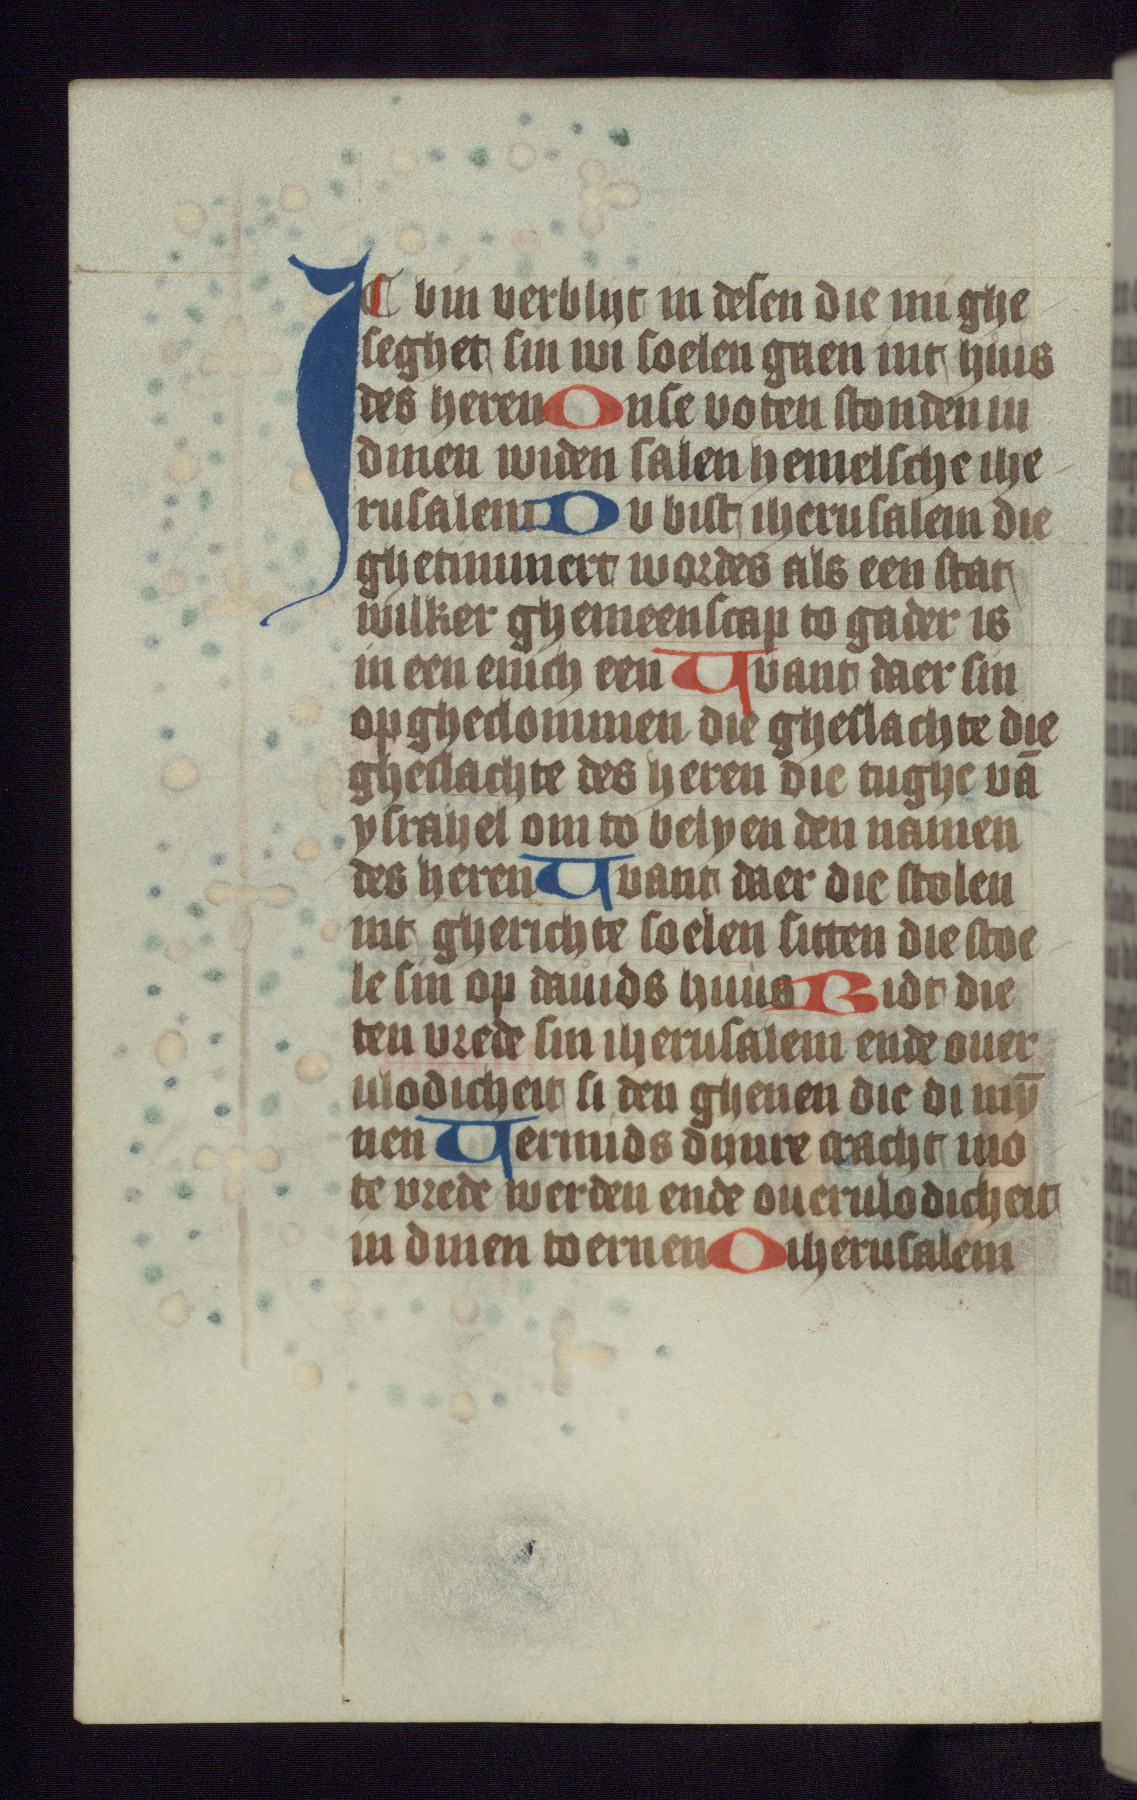 IC bin verblijt in desen die mi ghe
seghet sin wi soelen gaen int huus
des heren Onse voten stonden in
dinen widen salen hemelsche ihe
rusalem Du bist iherusalem die
ghetimmert wordes als een stat
wilker ghemeenscap to gader is
in een enich een Want daer sin
op gheclommen die gheslachte die
gheslachte des heren die tughe vā
ysrahel om to belyen den namen
des heren Want daer die stolen
int gherichte soelen sitten die stoe
le sin op dauids huus Bidt die
ten vrede sin iherusalem ende ouer
ulodicheit si den ghenen die di mỹ
nen Vermids dijnre cracht mo
te vrede werden ende oueruloedicheit
in dinen toernen O iherusalem